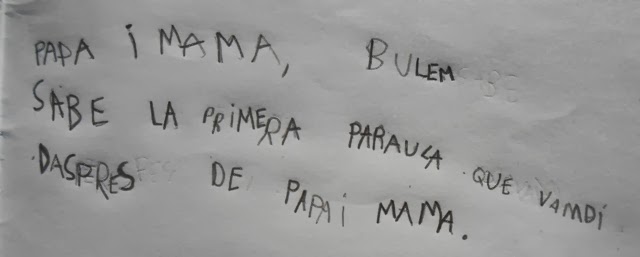 PAPA i MAMA, BULEM
SABE LA PRiMERA PARAULA QUE VAMDÍ
DASPRES DE PAPA i MAMA.